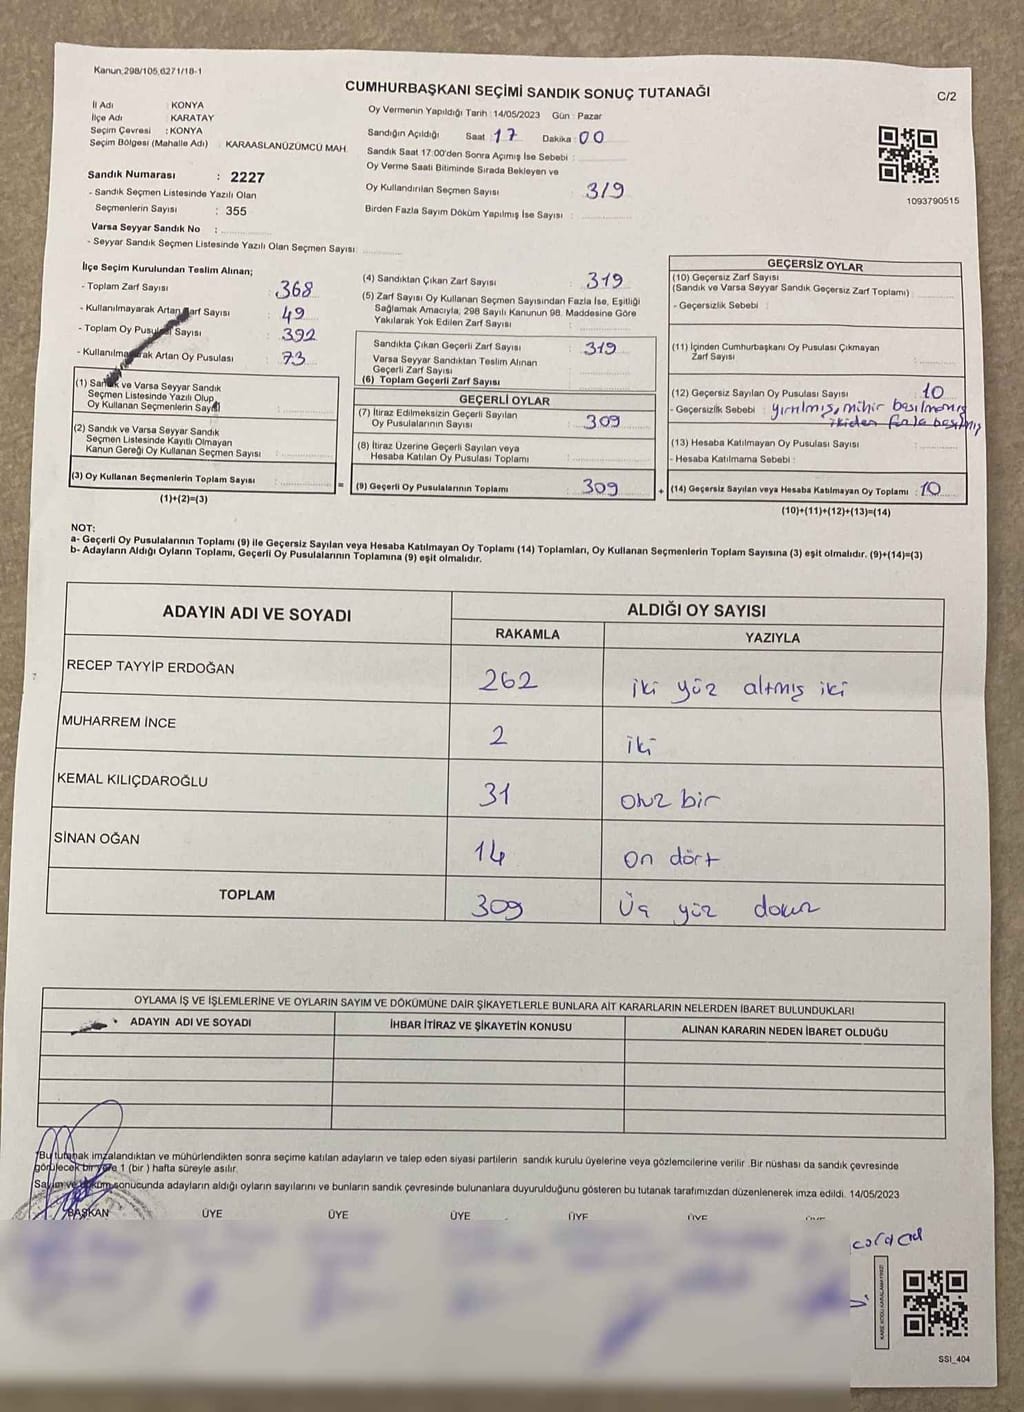 Kanun:298/105,6271/18-1
CUMHURBAŞKANI SEÇİMİ SANDIK SONUÇ TUTANAĞI
C/2
İl Adı : KONYA
İlçe Adı : KARATAY
Seçim Çevresi : KONYA
Seçim Bölgesi (Mahalle Adı) : KARAASLANÜZÜMCÜ MAH.
Oy Vermenin Yapıldığı Tarih : 14/05/2023 Gün : Pazar
Sandığın Açıldığı Saat : 17 Dakika : 00
Sandık Saat 17:00'den Sonra Açımış İse Sebebi :
Oy Verme Saati Bitiminde Sırada Bekleyen ve
Oy Kullandırılan Seçmen Sayısı : 319
Birden Fazla Sayım Döküm Yapılmış İse Sayısı :
1093790515
Sandık Numarası : 2227
- Sandık Seçmen Listesinde Yazılı Olan
Seçmenlerin Sayısı : 355
Varsa Seyyar Sandık No :
- Seyyar Sandık Seçmen Listesinde Yazılı Olan Seçmen Sayısı:
İlçe Seçim Kurulundan Teslim Alınan;
- Toplam Zarf Sayısı : 368
- Kullanılmayarak Artan Zarf Sayısı : 49
- Toplam Oy Pusulası Sayısı : 392
- Kullanılmayarak Artan Oy Pusulası : 73
(1) Sandık ve Varsa Seyyar Sandık
Seçmen Listesinde Yazılı Olup
Oy Kullanan Seçmenlerin Sayısı :
(2) Sandık ve Varsa Seyyar Sandık
Seçmen Listesinde Kayıtlı Olmayan
Kanun Gereği Oy Kullanan Seçmen Sayısı :
(3) Oy Kullanan Seçmenlerin Toplam Sayısı :
(1)+(2)=(3)
(4) Sandıktan Çıkan Zarf Sayısı : 319
(5) Zarf Sayısı Oy Kullanan Seçmen Sayısından Fazla İse, Eşitliği
Sağlamak Amacıyla, 298 Sayılı Kanunun 98. Maddesine Göre
Yakılarak Yok Edilen Zarf Sayısı :
Sandıkta Çıkan Geçerli Zarf Sayısı : 319
Varsa Seyyar Sandıktan Teslim Alınan
Geçerli Zarf Sayısı :
(6) Toplam Geçerli Zarf Sayısı
GEÇERLİ OYLAR
(7) İtiraz Edilmeksizin Geçerli Sayılan
Oy Pusulalarının Sayısı : 309
(8) İtiraz Üzerine Geçerli Sayılan veya
Hesaba Katılan Oy Pusulası Toplamı :
= (9) Geçerli Oy Pusulalarının Toplamı : 309
GEÇERSİZ OYLAR
(10) Geçersiz Zarf Sayısı
(Sandık ve Varsa Seyyar Sandık Geçersiz Zarf Toplamı) :
- Geçersizlik Sebebi :
(11) İçinden Cumhurbaşkanı Oy Pusulası Çıkmayan
Zarf Sayısı :
(12) Geçersiz Sayılan Oy Pusulası Sayısı : 10
- Geçersizlik Sebebi : yırtılmış, mühür basılmamış
ikiden fazla basılmış
(13) Hesaba Katılmayan Oy Pusulası Sayısı :
- Hesaba Katılmama Sebebi :
+ (14) Geçersiz Sayılan veya Hesaba Katılmayan Oy Toplamı : 10
(10)+(11)+(12)+(13)=(14)
NOT:
a- Geçerli Oy Pusulalarının Toplamı (9) ile Geçersiz Sayılan veya Hesaba Katılmayan Oy Toplamı (14) Toplamları, Oy Kullanan Seçmenlerin Toplam Sayısına (3) eşit olmalıdır. (9)+(14)=(3)
b- Adayların Aldığı Oyların Toplamı, Geçerli Oy Pusulalarının Toplamına (9) eşit olmalıdır.
ADAYIN ADI VE SOYADI
ALDIĞI OY SAYISI
RAKAMLA YAZIYLA
RECEP TAYYİP ERDOĞAN 262 iki yüz altmış iki
MUHARREM İNCE 2 iki
KEMAL KILIÇDAROĞLU 31 otuz bir
SİNAN OĞAN 14 on dört
TOPLAM 309 Üç yüz dokuz
OYLAMA İŞ VE İŞLEMLERİNE VE OYLARIN SAYIM VE DÖKÜMÜNE DAİR ŞİKAYETLERLE BUNLARA AİT KARARLARIN NELERDEN İBARET BULUNDUKLARI
ADAYIN ADI VE SOYADI İHBAR İTİRAZ VE ŞİKAYETİN KONUSU ALINAN KARARIN NEDEN İBARET OLDUĞU
Bu tutanak imzalandıktan ve mühürlendikten sonra seçime katılan adayların ve talep eden siyasi partilerin sandık kurulu üyelerine veya gözlemcilerine verilir .Bir nüshası da sandık çevresinde
görülecek bir yere 1 (bir ) hafta süreyle asılır.
Sayım ve döküm sonucunda adayların aldığı oyların sayılarını ve bunların sandık çevresinde bulunanlara duyurulduğunu gösteren bu tutanak tarafımızdan düzenlenerek imza edildi. 14/05/2023
BAŞKAN ÜYE ÜYE ÜYE ÜYE ÜYE ÜYE
SSI_404